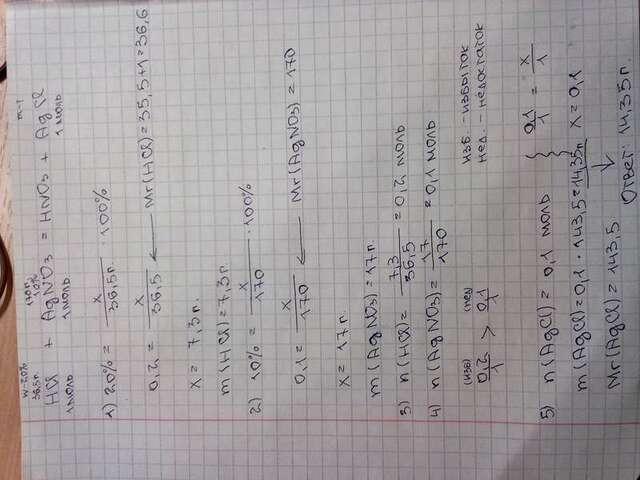 w-20% 170г. m-?
36,5г. 10%
HCl + AgNO3 = HNO3 + AgCl
1моль 1моль 1 моль
1) 20% = x/36,5г. · 100%
0,2 = x/36,5 ← Mr(HCl) = 35,5+1=36,6
x = 7,3г.
m(HCl) = 7,3г.
2) 10% = x/170 · 100%
0,1 = x/170 ← Mr(AgNO3) = 170
x = 17г.
m(AgNO3) = 17г.
3) n(HCl) = 7,3/36,5 = 0,2 моль
4) n(AgNO3) = 17/170 = 0,1 моль
(изб) (нед) изб. - избыток
0,2/1 > 0,1/1 нед. - недостаток
5) n(AgCl) = 0,1 моль } 0,1/1 = x/1
m(AgCl) = 0,1 · 143,5 = 14,35г x = 0,1
Mr(AgCl) = 143,5 Ответ: 14,35г.